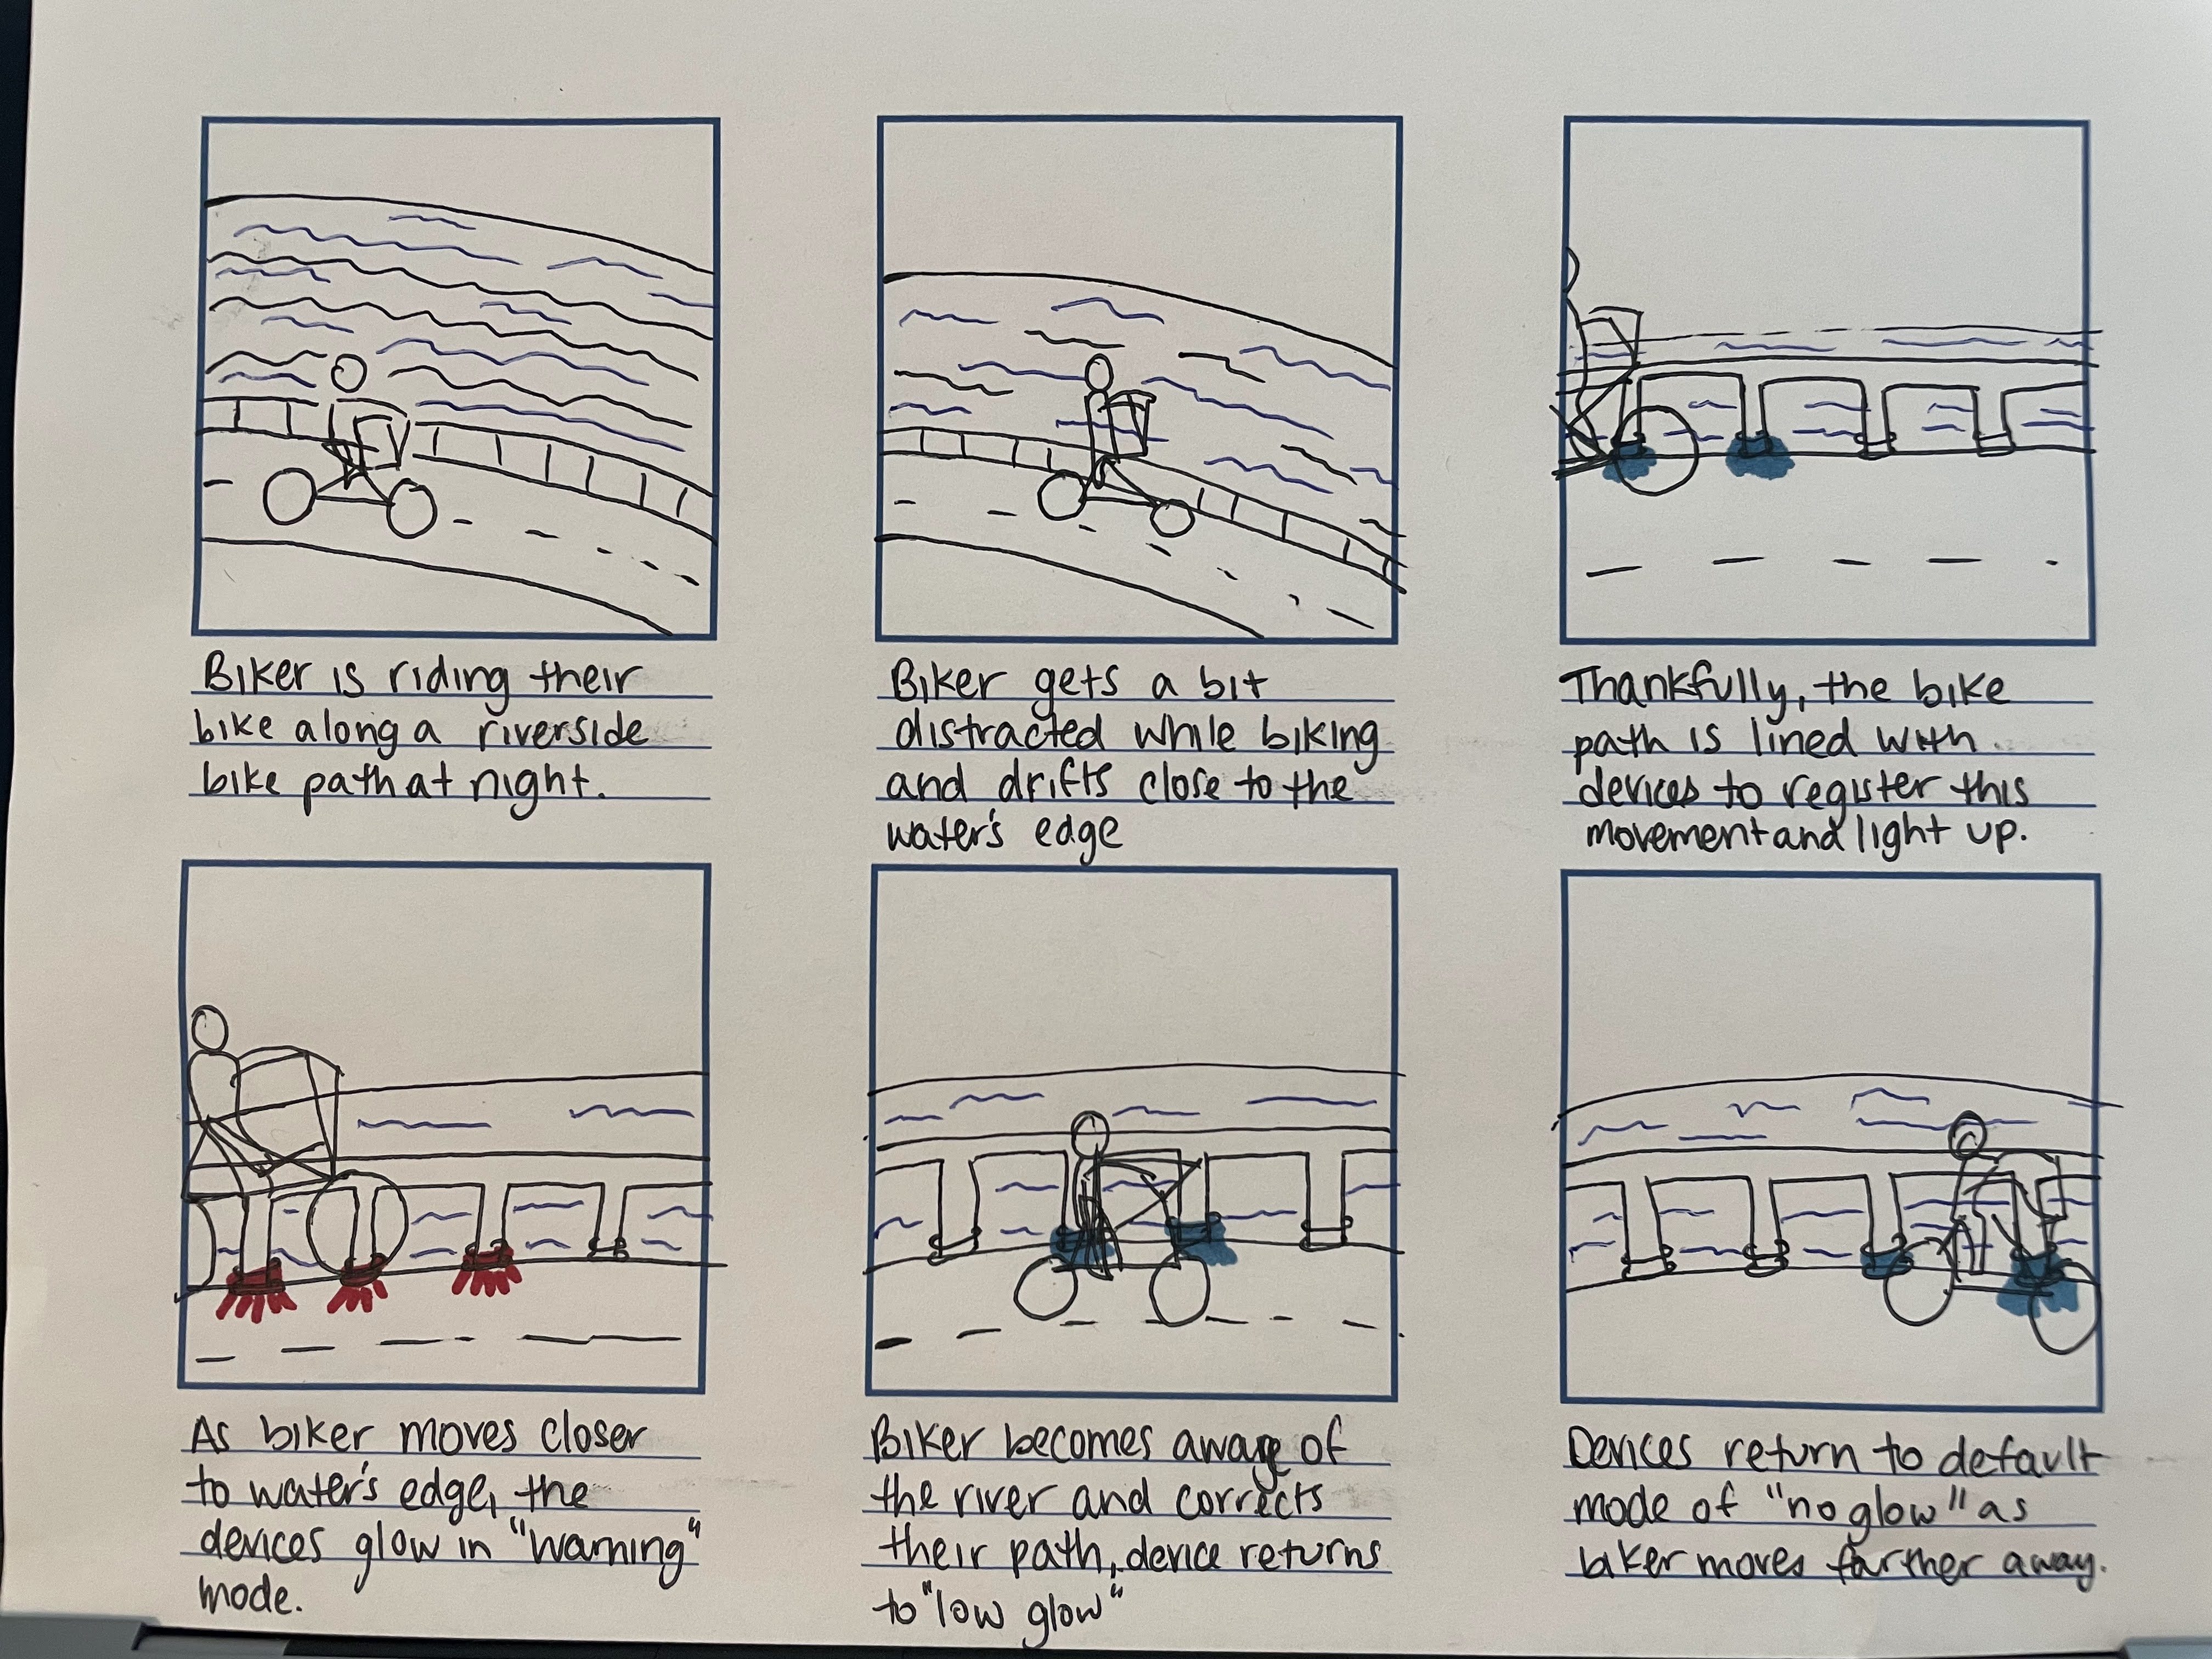 Biker is riding their
bike along a riverside
bike path at night.
Biker gets a bit
distracted while biking
and drifts close to the
water's edge
Thankfully, the bike
path is lined with
devices to register this
movement and light up.
As biker moves closer
to water's edge, the
devices glow in "warning"
mode.
Biker becomes aware of
the river and corrects
their path, device returns
to "low glow"
Devices return to default
mode of "no glow" as
biker moves farther away.